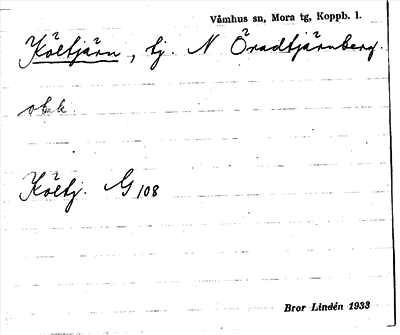 Våmhus sn, Mora tg, Koppb. l.
Költjärn, tj. N Öradtjärnberg.
obk.
Költj. G 108
Bror Lindén 1933